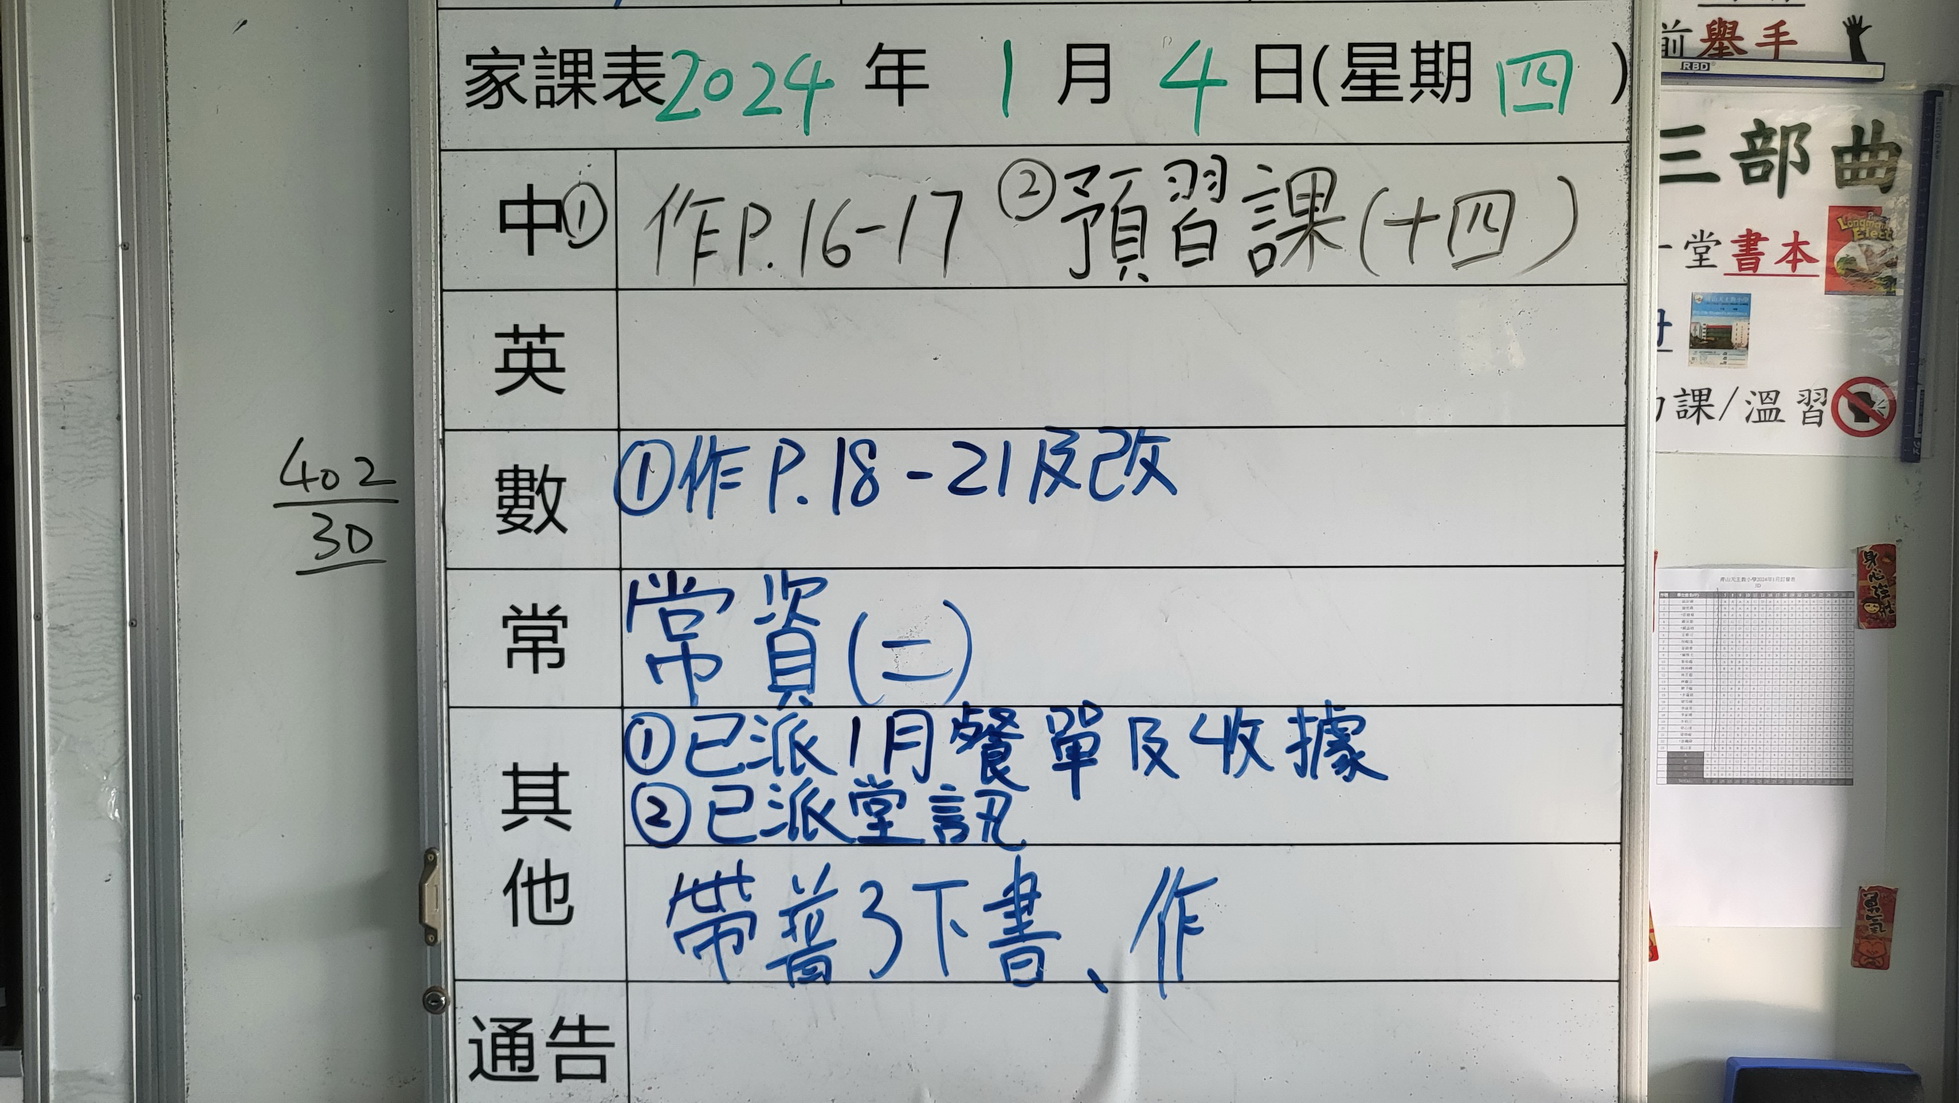 家課表2024年1月4日(星期四)
中① 作P.16-17 ②預習課(十四)
英
數 ①作P.18-21及改
常 常資(二)
其他 ①已派1月餐單及收據
②已派堂訊
帶普3下書、作
通告
402
30
前舉手
RBD
三部曲
堂書本
課/溫習
身心
勇氣